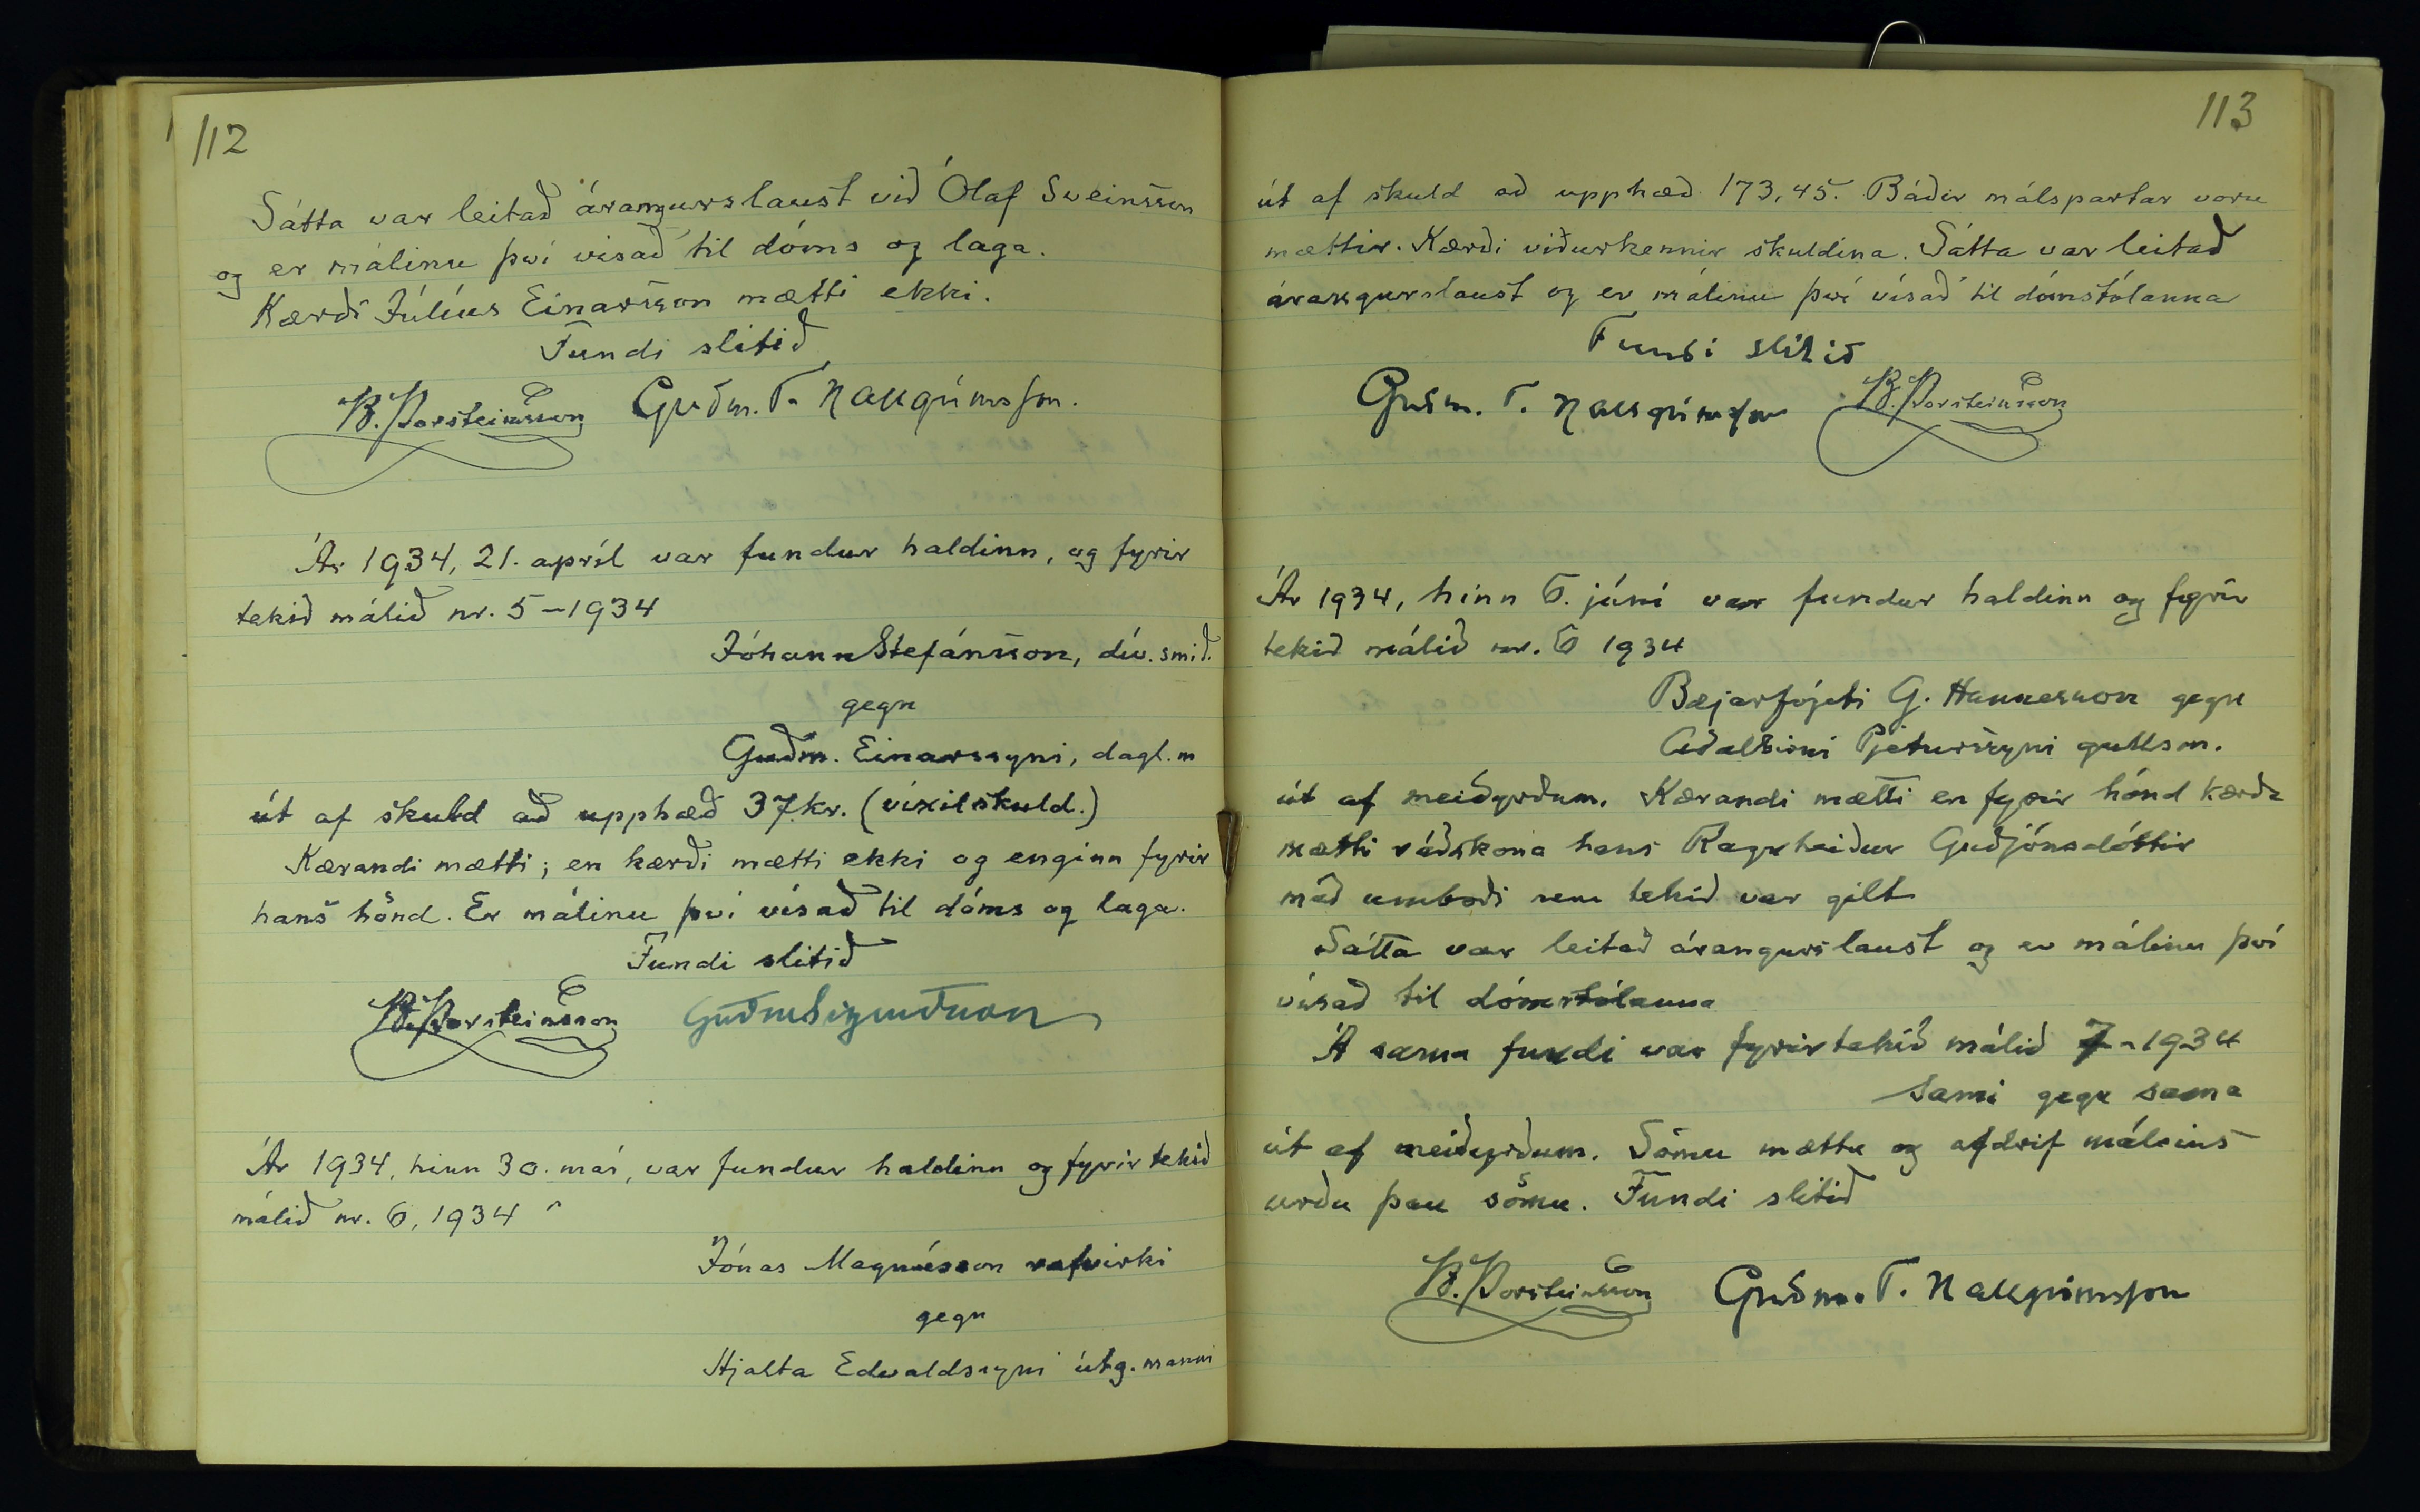 112
Sátta var leitað árangurslaust við Ólaf Sveinsson
og er málinu því vísað til dóms og laga.
Kærði Júlíus Einarsson mætti ekki.
Fundi slitið
B. Þorsteinsson Guðm. T. Hallgrímsson.
Ár 1934, 21. apríl var fundur haldinn, og fyrir
tekið málið nr. 5-1934
Jóhann Stefánsson, dív. smið.
gegn
Guðm. Einarssyni, dagl. m
út af skuld að upphæð 37 kr. (víxilskuld.)
Kærandi mætti; en kærði mætti ekki og enginn fyrir
hans hönd. Er málinu því vísað til dóms og laga.
Fundi slitið
B. Þorsteinsson
Ár 1934, hinn 30. maí, var fundur haldinn og fyrir tekið
málið nr. 6, 1934
Jónas Magnússon rafvirki
gegn
Hjalta Edvaldssyni útg. manni
113
út af skuld að upphæð 173,45. Báðir málspartar voru
mættir. Kærði viðurkennir skuldina. Sátta var leitað
árangurslaust og er málinu því vísað til dómstólanna
Fundi slitið
Guðm. T. Hallgrímsson B. Þorsteinsson
Ár 1934, hinn 6. júní var fundur haldinn og fyrir
tekið málið nr. 6 1934
Bæjarfógeti G. Hannesson gegn
Aðalbirni Pjeturssyni gullsm.
út af meiðyrðum. Kærandi mætti en fyrir hönd kærða
mætti ráðskona hans Ragnheiður Guðjónsdóttir
með umboði sem tekið var gilt
Sátta var leitað árangurslaust og er málinu því
vísað til dómstólanna
Á sama fundi var fyrirtekið málið 7-1934
Sami gegn sama
út af meiðyrðum. Sömu mættu og afdrif málsins
urðu þau sömu. Fundi slitið
B. Þorsteinsson Guðm. T. Hallgrímsson